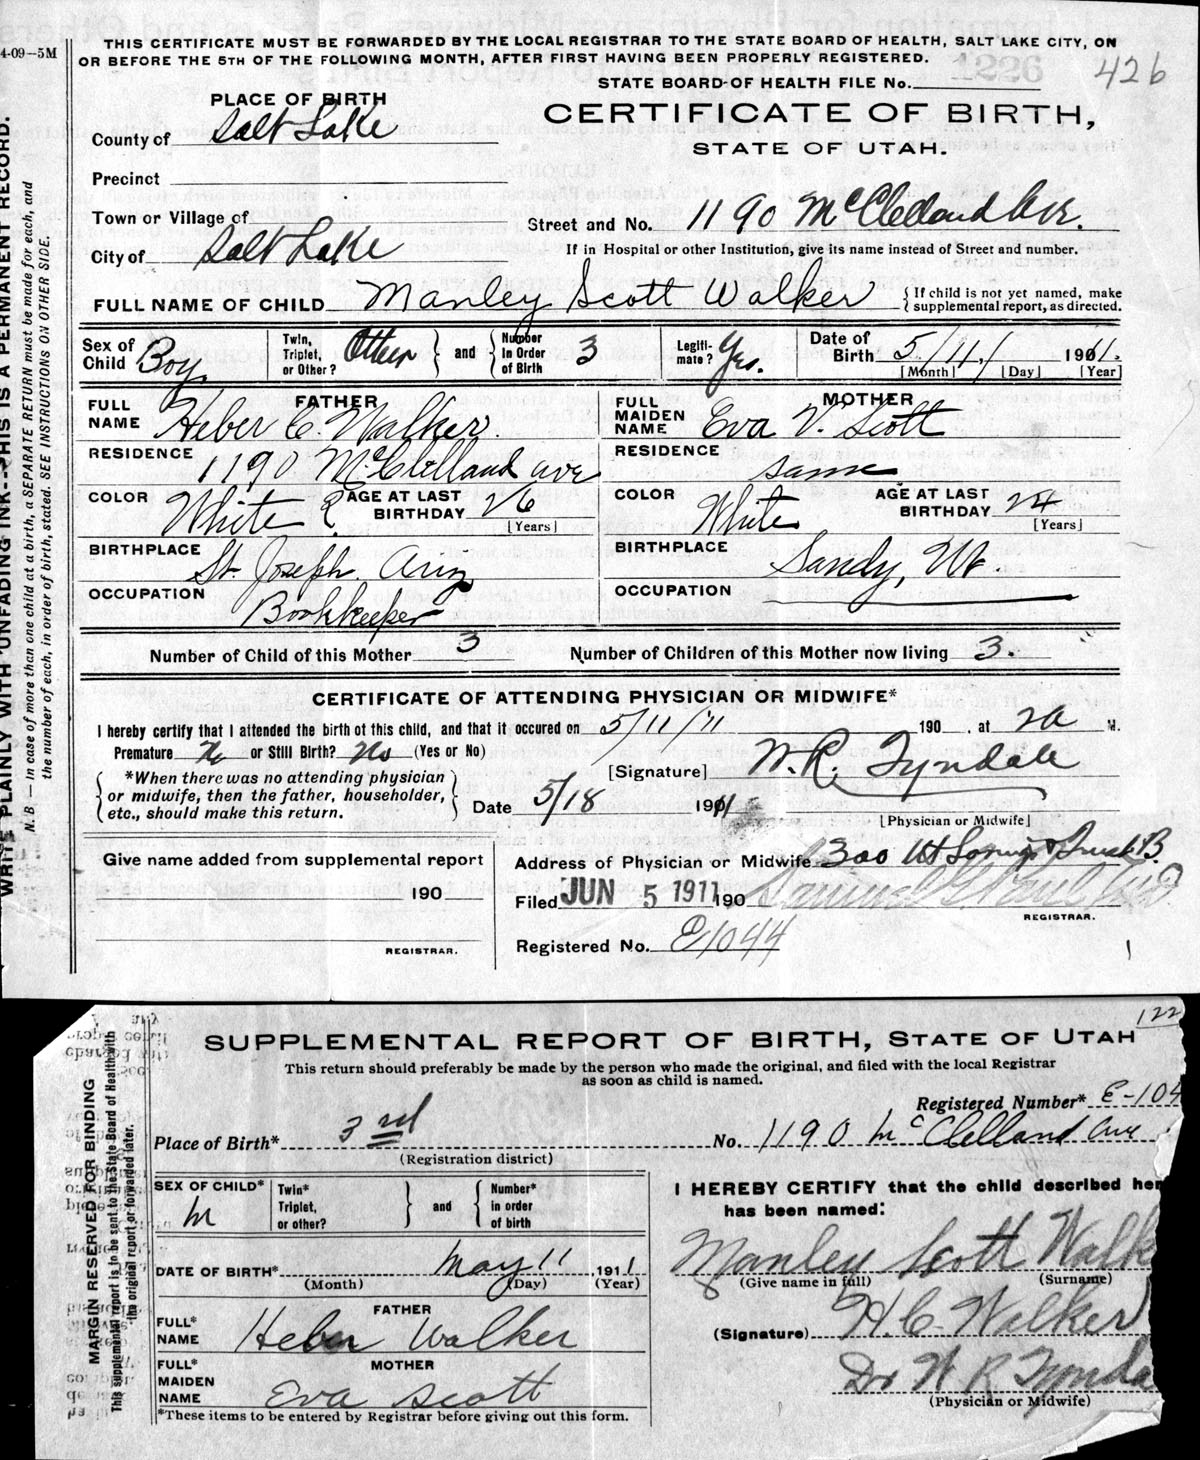 4-09—5M
THIS CERTIFICATE MUST BE FORWARDED BY THE LOCAL REGISTRAR TO THE STATE BOARD OF HEALTH, SALT LAKE CITY, ON
OR BEFORE THE 5TH OF THE FOLLOWING MONTH, AFTER FIRST HAVING BEEN PROPERLY REGISTERED.
1226 426
STATE BOARD OF HEALTH FILE No.
PLACE OF BIRTH
CERTIFICATE OF BIRTH,
County of Salt Lake
STATE OF UTAH.
Precinct
Town or Village of
Street and No. 1190 McClelland Ave.
City of Salt Lake
If in Hospital or other Institution, give its name instead of Street and number.
FULL NAME OF CHILD Manley Scott Walker { If child is not yet named, make supplemental report, as directed.
Sex of Child Boy Twin, Triplet, or Other? Other } and { Number in Order of Birth 3 Legiti-mate? Yes. Date of Birth 5/11/ 1911.
[Month] [Day] [Year]
FATHER MOTHER
FULL NAME Heber C. Walker. FULL MAIDEN NAME Eva V. Scott
RESIDENCE 1190 McClelland ave RESIDENCE same
COLOR White AGE AT LAST BIRTHDAY 26 [Years] COLOR White AGE AT LAST BIRTHDAY 24 [Years]
BIRTHPLACE St. Joseph. Ariz BIRTHPLACE Sandy, Ut.
OCCUPATION Bookkeeper OCCUPATION
Number of Child of this Mother 3 Number of Children of this Mother now living 3.
CERTIFICATE OF ATTENDING PHYSICIAN OR MIDWIFE*
I hereby certify that I attended the birth of this child, and that it occured on 5/11/'11 190 , at 2 a M.
Premature No or Still Birth? No (Yes or No)
[Signature] W. R. Tyndale
{ *When there was no attending physician
or midwife, then the father, householder,
etc., should make this return. }
Date 5/18 1911
[Physician or Midwife]
Give name added from supplemental report
190
REGISTRAR.
Address of Physician or Midwife 300
Filed JUN 5 1911 190 Samuel G. Paul
REGISTRAR.
Registered No. E1044
WRITE PLAINLY WITH UNFADING INK--THIS IS A PERMANENT RECORD.
N. B. — In case of more than one child at a birth, a SEPARATE RETURN must be made for each, and
the number of each, in order of birth, stated. SEE INSTRUCTIONS ON OTHER SIDE.
122
SUPPLEMENTAL REPORT OF BIRTH, STATE OF UTAH
This return should preferably be made by the person who made the original, and filed with the local Registrar
as soon as child is named.
Registered Number* E-104
Place of Birth* 3rd No. 1190 McClelland Ave
(Registration district)
SEX OF CHILD* M Twin* Triplet, or other? } and { Number* in order of birth
I HEREBY CERTIFY that the child described her
has been named:
Manley Scott Walk
(Give name in full) (Surname)
DATE OF BIRTH* May 11 1911
(Month) (Day) (Year)
FATHER
FULL* NAME Heber Walker
(Signature) H. C. Walker
MOTHER
FULL* MAIDEN NAME Eva Scott
Dr W R Tynda
(Physician or Midwife)
*These items to be entered by Registrar before giving out this form.
MARGIN RESERVED FOR BINDING
This supplemental report is to be sent to the State Board of Health with
the original report or forwarded later.